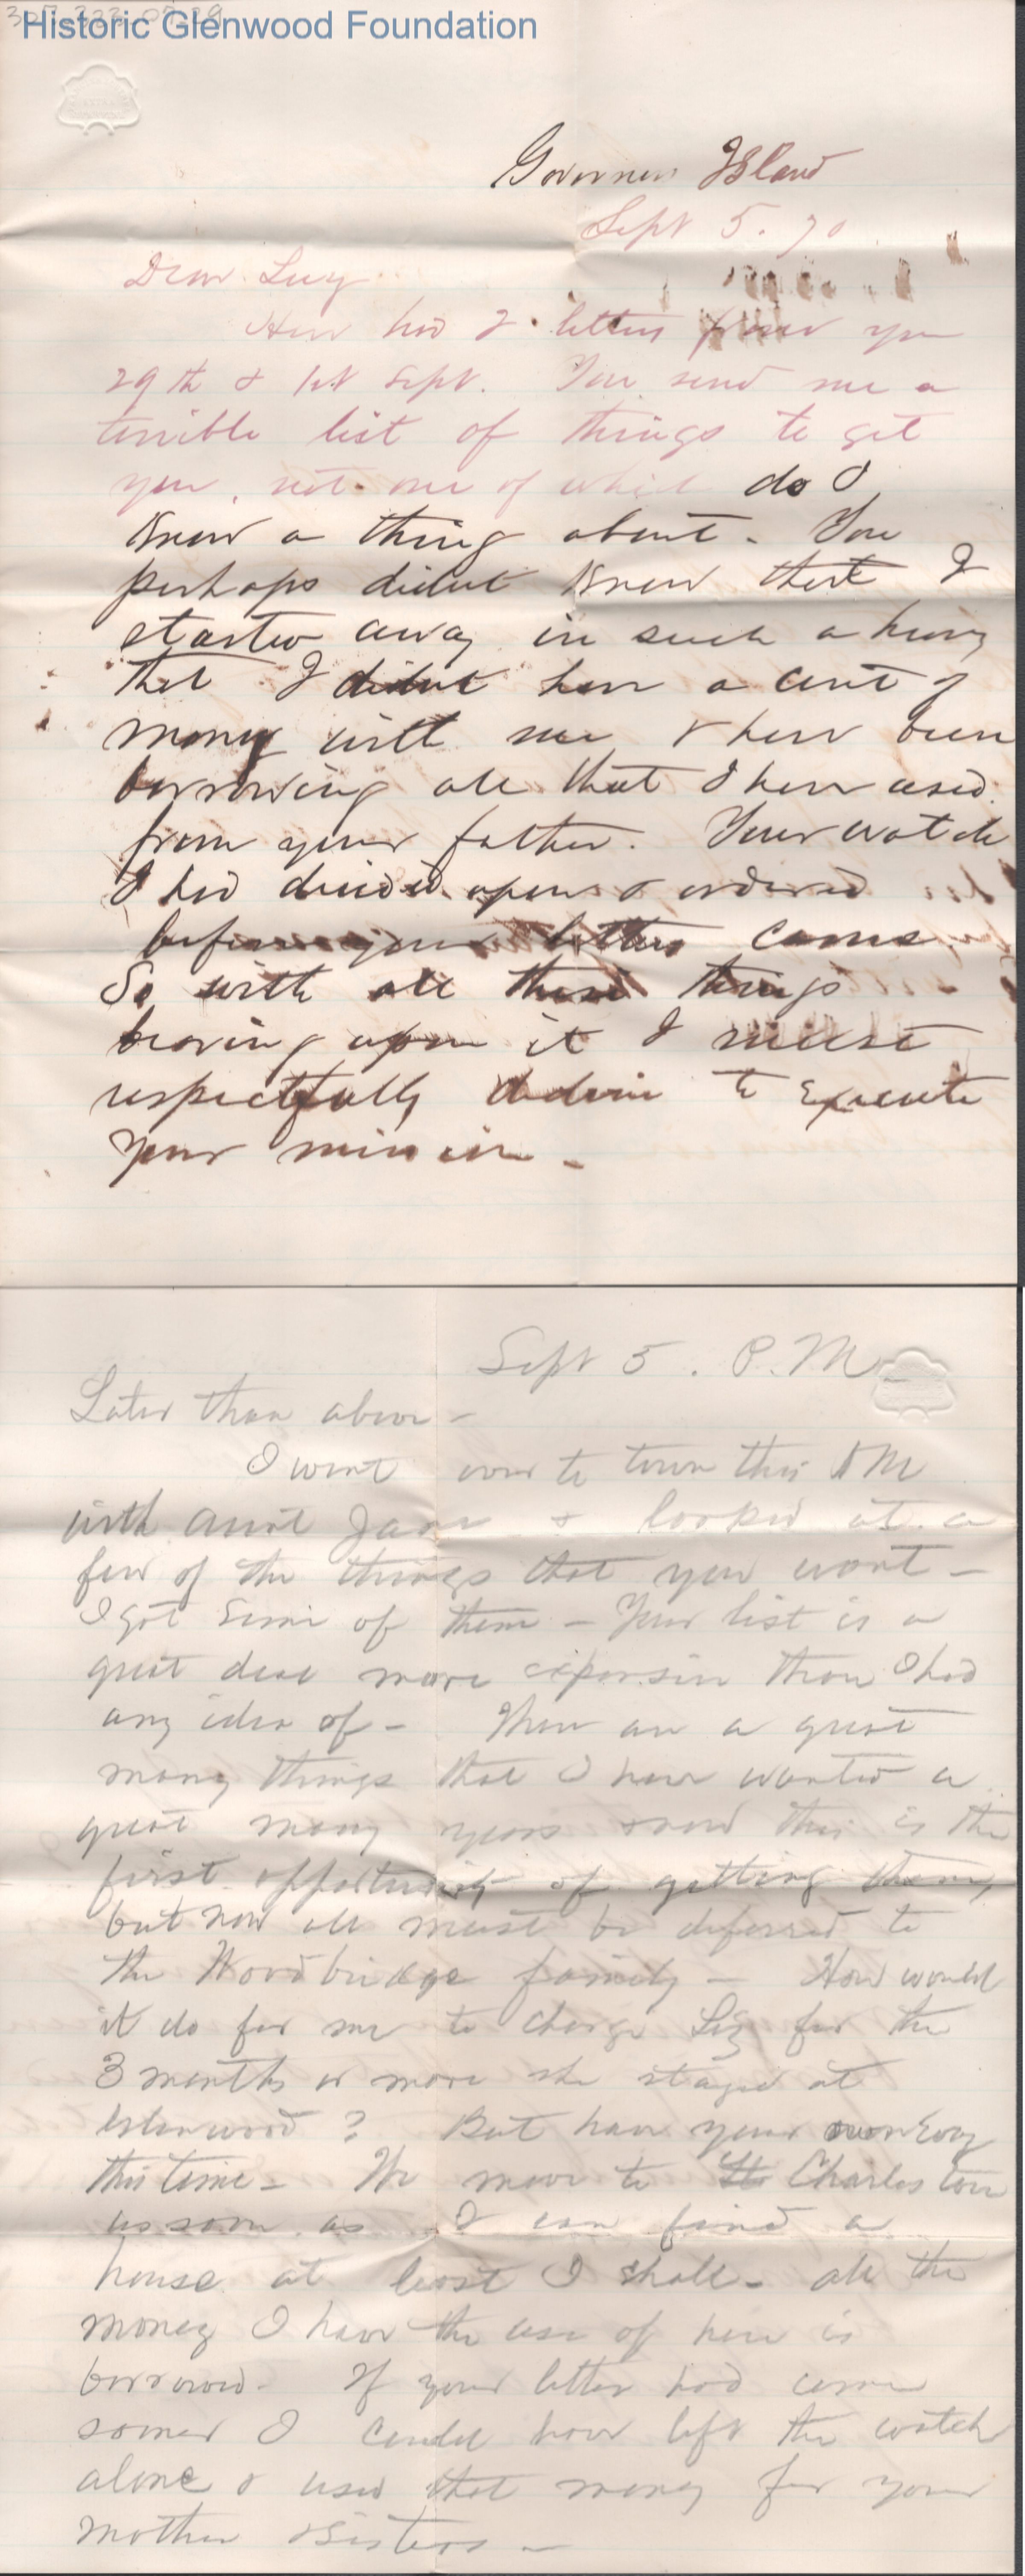 307-333-07-29
Historic Glenwood Foundation
Governors Island
Sept 5. 70
Dear Lucy
Have had 2 letters from you
29th & 1st Sept. You send me a
terrible list of things to get
you, not one of which do I
know a thing about. You
perhaps didnt know that I
started away in such a hurry
that I didnt have a cent of
money with me & have been
borrowing all that I have used
from your father. Your watch
I had decided upon & ordered
before your letters came.
So with all these things
bearing upon it I must
respectfully decline to execute
your mission -
Sept 5. P.M.
Later than above -
I went over to town this AM
with Aunt Jane & looked at a
few of the things that you want -
I got some of them - Your list is a
great deal more expensive than I had
any idea of - There are a great
many things that I have wanted a
great many years & now this is the
first opportunity of getting them,
but now all must be deferred to
the Woodbridge family - How would
it do for me to charge Liz for the
3 months or more she stayed at
Glenwood? But have your own way
this time - We move to Charleston
as soon as I can find a
house at least I shall - all the
money I have the use of here is
borrowed. If your letter had come
sooner I could have left the watch
alone & used that money for your
mother & sisters -